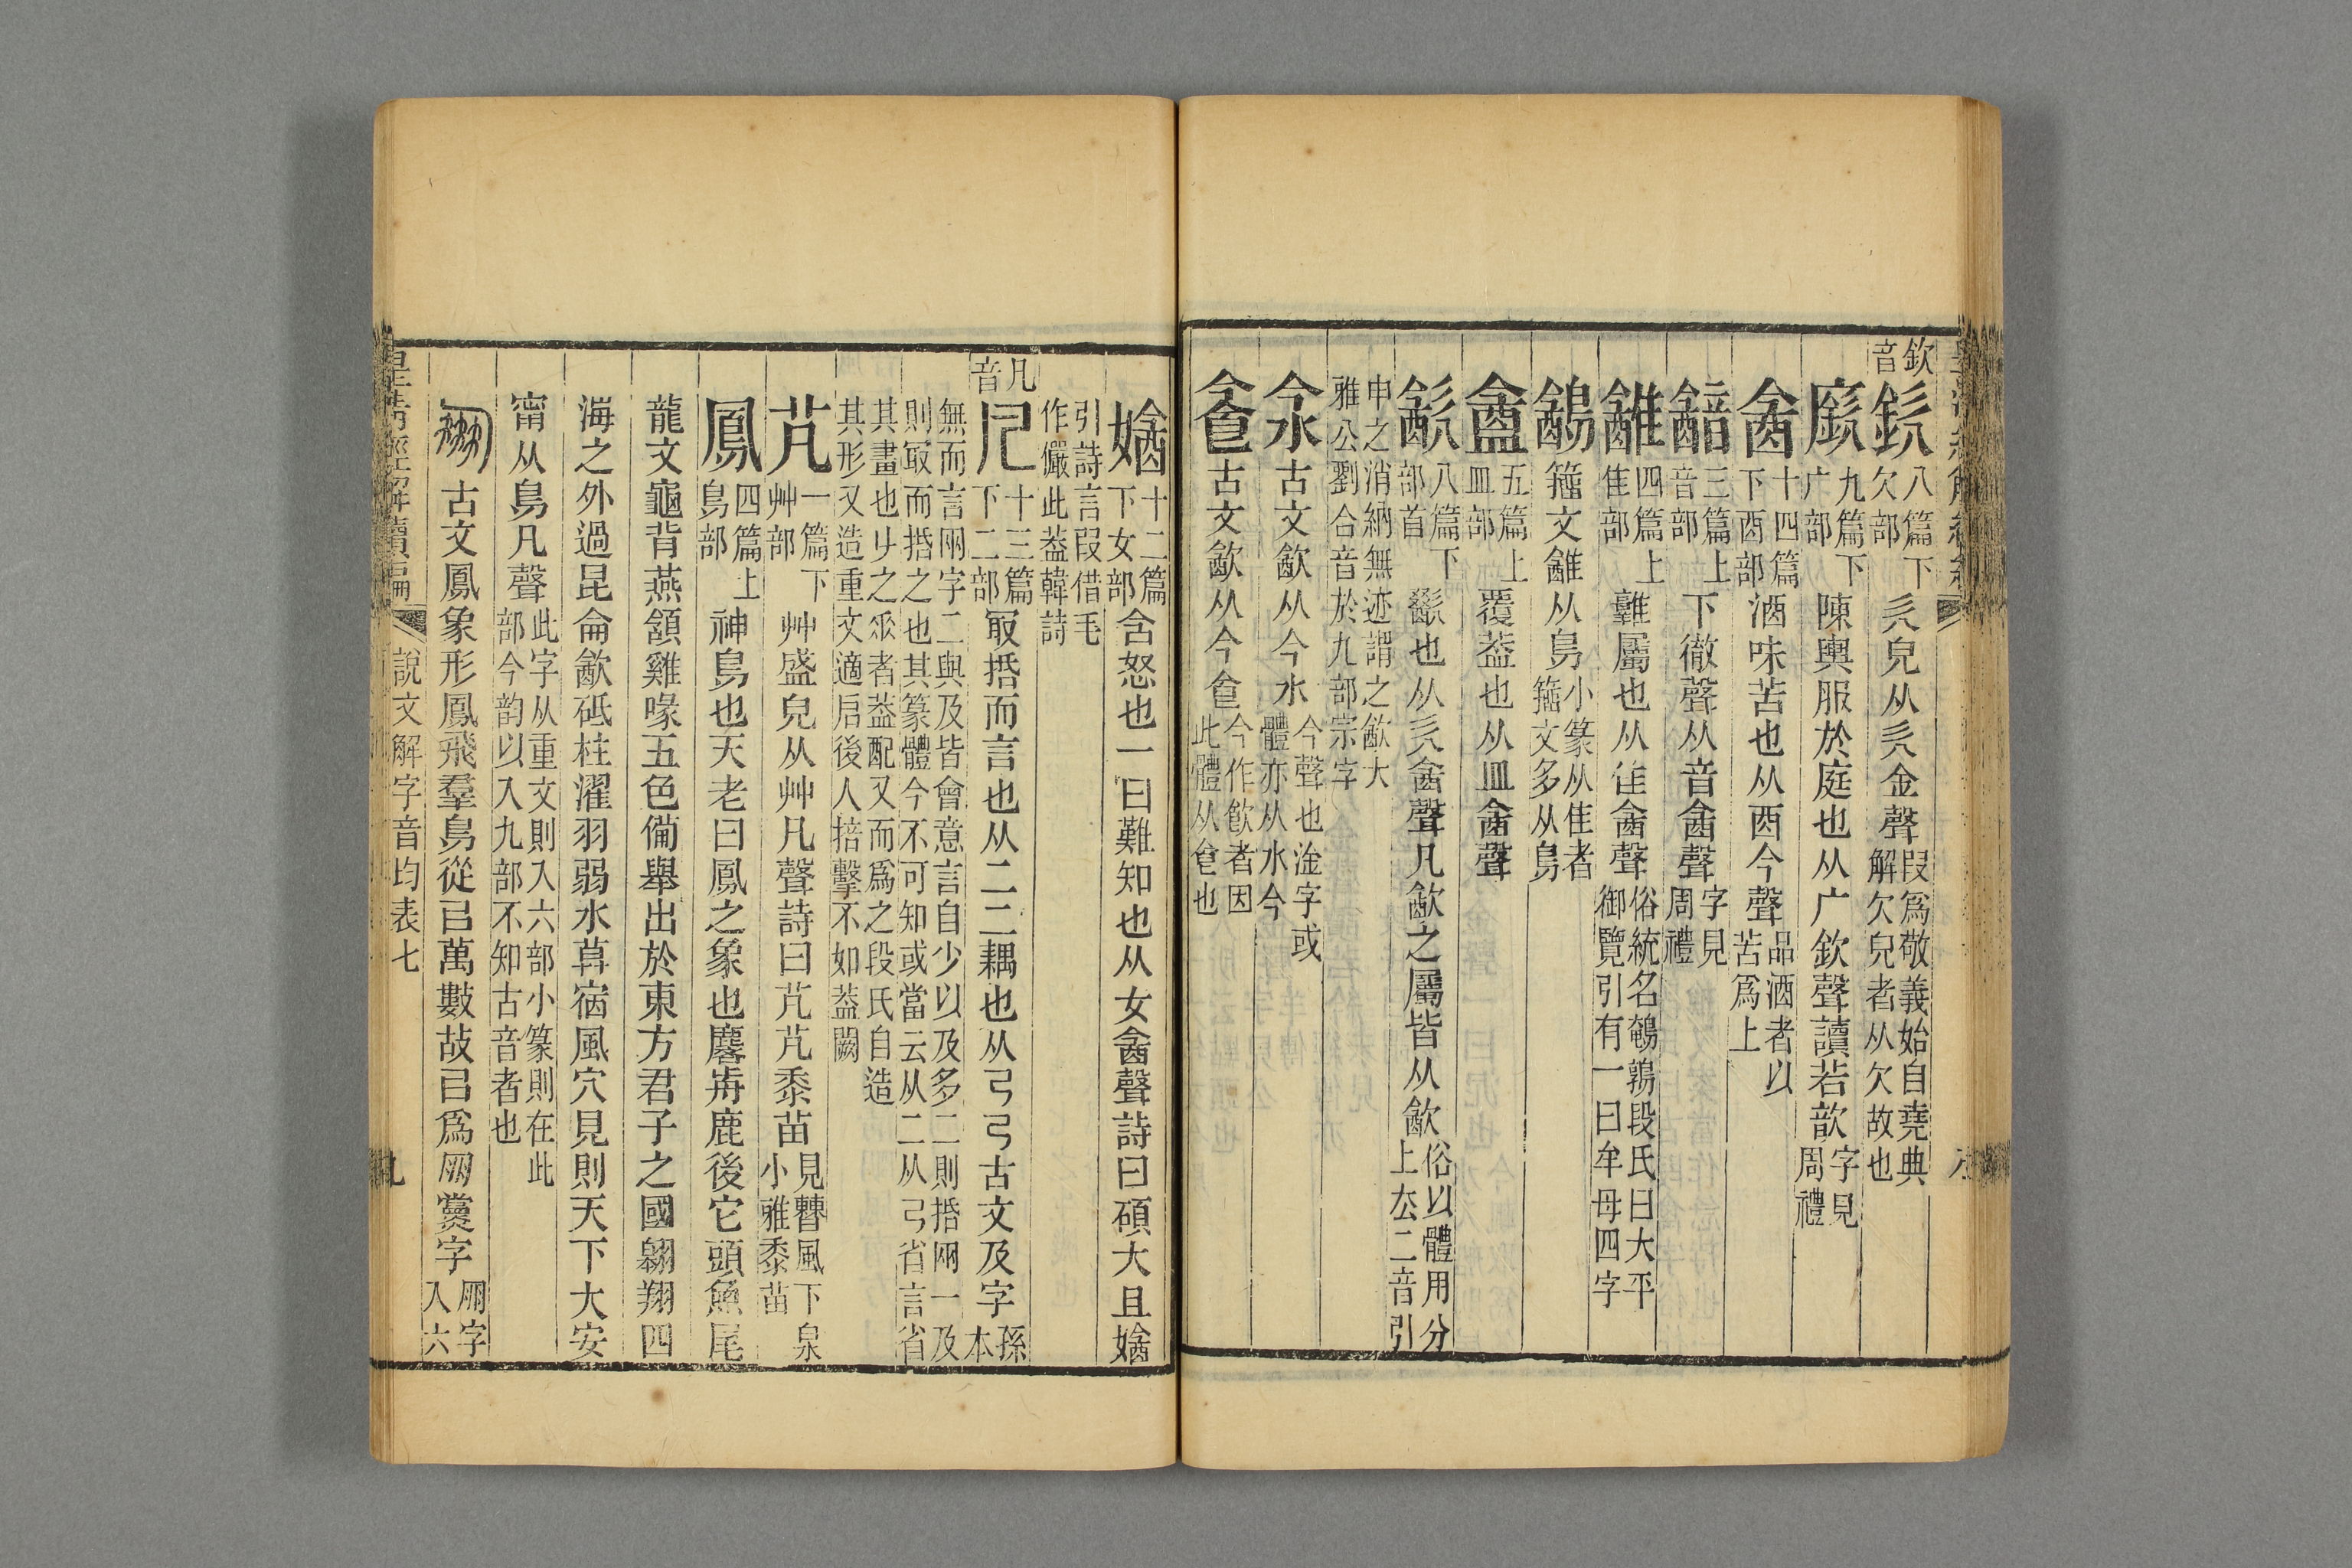 欽音
欽 八篇下欠部 皃从金聲 叚爲敬義始自堯典解欠皃者从欠故也
廞 九篇下广部 陳輿服於庭也从广欽聲讀若歆 字見周禮
酓 十四篇下酉部 酒味苦也从酉今聲 品酒者以苦爲上
韽 三篇上音部 下徹聲从音酓聲 字見周禮
雂 四篇上隹部 雗屬也从隹酓聲 俗統名鵪鶉段氏曰大平御覽引有一曰牟母四字
䳺 籒文䧹从鳥 小篆从隹者籒文多从鳥
盦 五篇上皿部 覆葢也从皿酓聲
㱃 八篇下部首 歠也从酓聲凡㱃之屬皆从㱃 俗以體用分上去二音引
申之消納無迹謂之㱃大雅公劉合音於九部宗字
㱃 古文㱃从今水 今聲也淦字或體亦从水今
㱃 古文㱃从今食 今作飮者因此體从食也
皇淸經解續編
嬐 十二篇下女部 含怒也一曰難知也从女酓聲詩曰碩大且嬐
引詩言叚借毛作儼此葢韓詩
凡音
凡 十三篇下二部 冣括而言也从二二耦也从弓弓古文及字 孫本
無而言网字二與及皆會意言自少以及多二則括网一及則冣而括之也其篆體今不可知或當云从二从弓省言省
其畫也之者葢配又而爲之段氏自造其形又造重文適后後人掊擊不如葢闕
芃 一篇下艸部 艸盛皃从艸凡聲詩曰芃芃黍苗 見曹風下泉小雅黍苗
鳳 四篇上鳥部 神鳥也天老曰鳳之象也麐歬鹿後它頭魚尾
龍文龜背燕頷雞喙五色僃舉出於東方君子之國翱翔四
海之外過昆侖㱃砥柱濯羽弱水莫宿風穴見則天下大安
甯从鳥凡聲 此字从重文則入六部小篆則在此部今韵以入九部不知古音者也
古文鳳象形鳳飛羣鳥從㠯萬數故㠯爲朋黨字 朋字入六
皇淸經解續編 說文解字音均表七 九